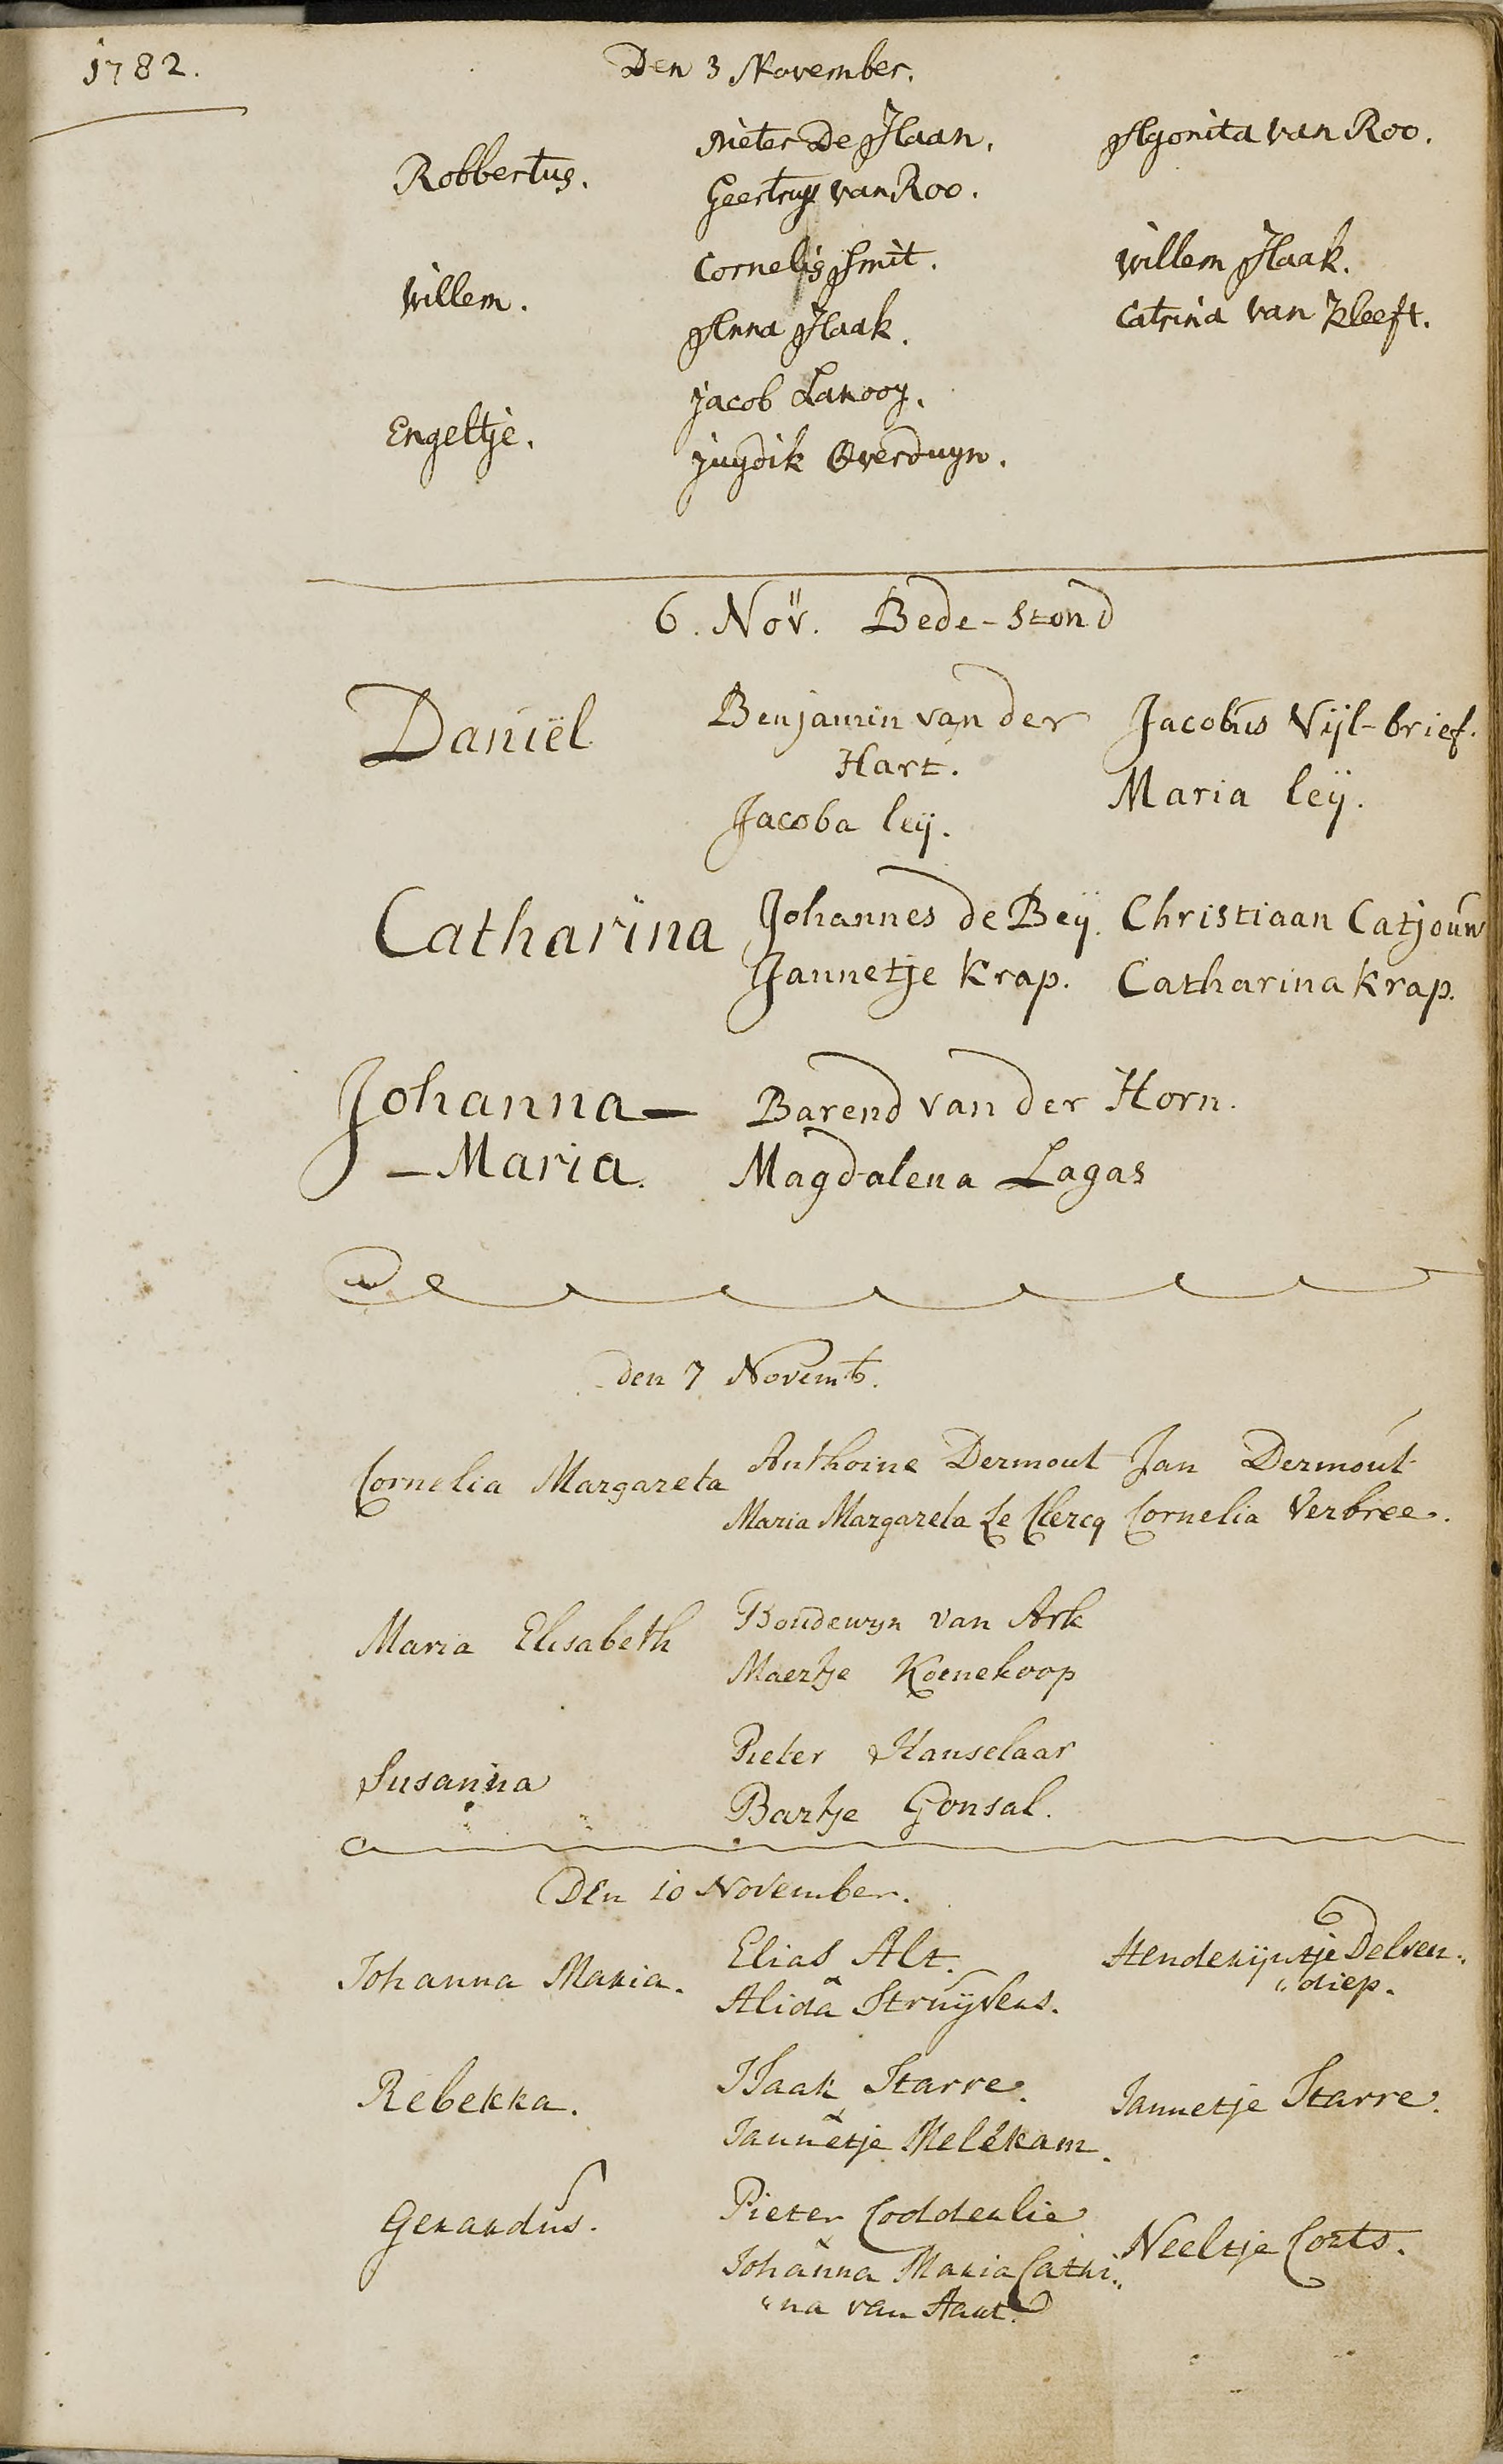 1782.
Den 3 November.
Robbertus.
Pieter De Haan.
Geertruy van Roo.
Agonita van Roo.
Willem.
Cornelis Smit.
Anna Haak.
Willem Haak.
Catrina van Kleeft.
Engeltje.
Jacob Lanooy.
Juydik Overduyn.
6. Nov. Bede-Stond
Daniël
Benjamin van der
Hart.
Jacoba leij.
Jacobus Vijl-brief.
Maria leij.
Catharina
Johannes de Beij.
Jannetje Krap.
Christiaan Catjouw
Catharina Krap.
Johanna-
-Maria.
Barend van der Horn.
Magdalena Lagas
den 7 Novemb.
Cornelia Margareta
Anthoine Dermout
Maria Margareta Le Clercq
Jan Dermout
Cornelia Verbree.
Maria Elisabeth
Boudewyn van Ark
Maertje Koenekoop
Susanna
Pieter Hanselaar
Bartje Gonsal.
Den 10 November.
Johanna Maria.
Elias Alt.
Alida Struijvens.
Henderijntje Delven„
„diep.
Rebekka.
Isaak Starre.
Jannetje Melekam.
Jannetje Starre.
Gerardus.
Pieter Coddenlie
Johanna Maria Cathi„
„na van Aart.
Neeltje Corts.